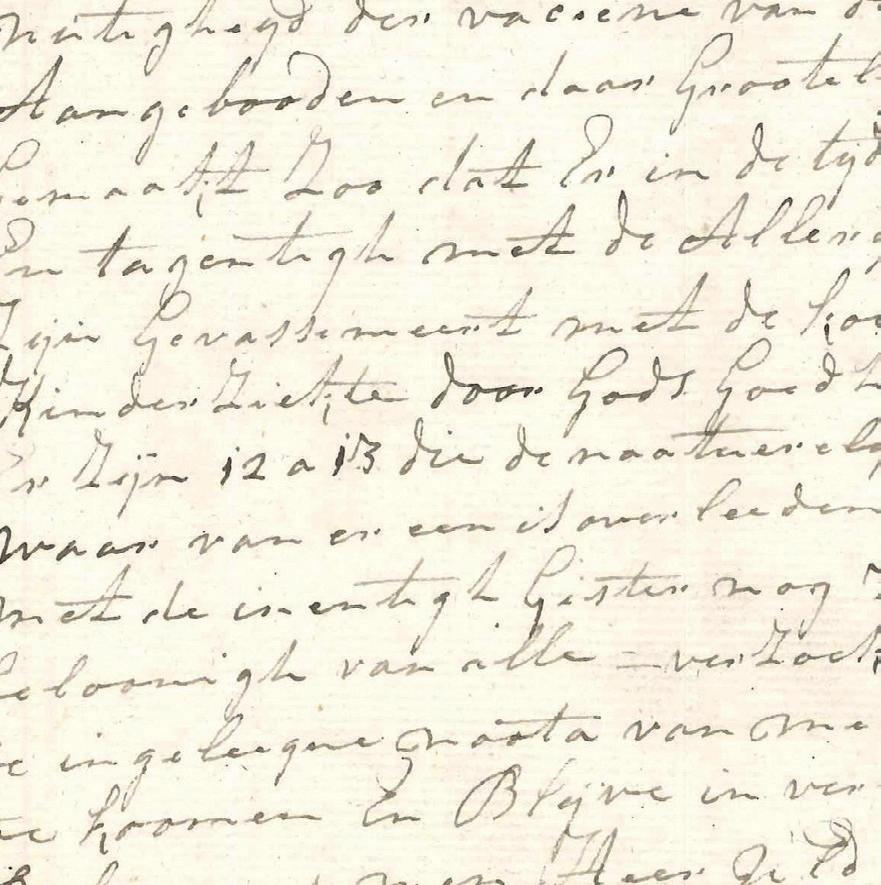 nutigheyd der vaccene van d
Aangebooden en daar Grootel
Gemaakt Zoo dat Er in de tyd
En tagentigh met de Aller
Zijn Gevassineert met de koe
Kinder Ziekte door Gods Goedh
Er Zijn 12 a 13 die de naatuerely
waar van er een is overleeden
met de inentigh Gister nog
beloonigh van alle = verZoek
de ingeleegne noota van me
te koomen En Blijve in ver
Heer